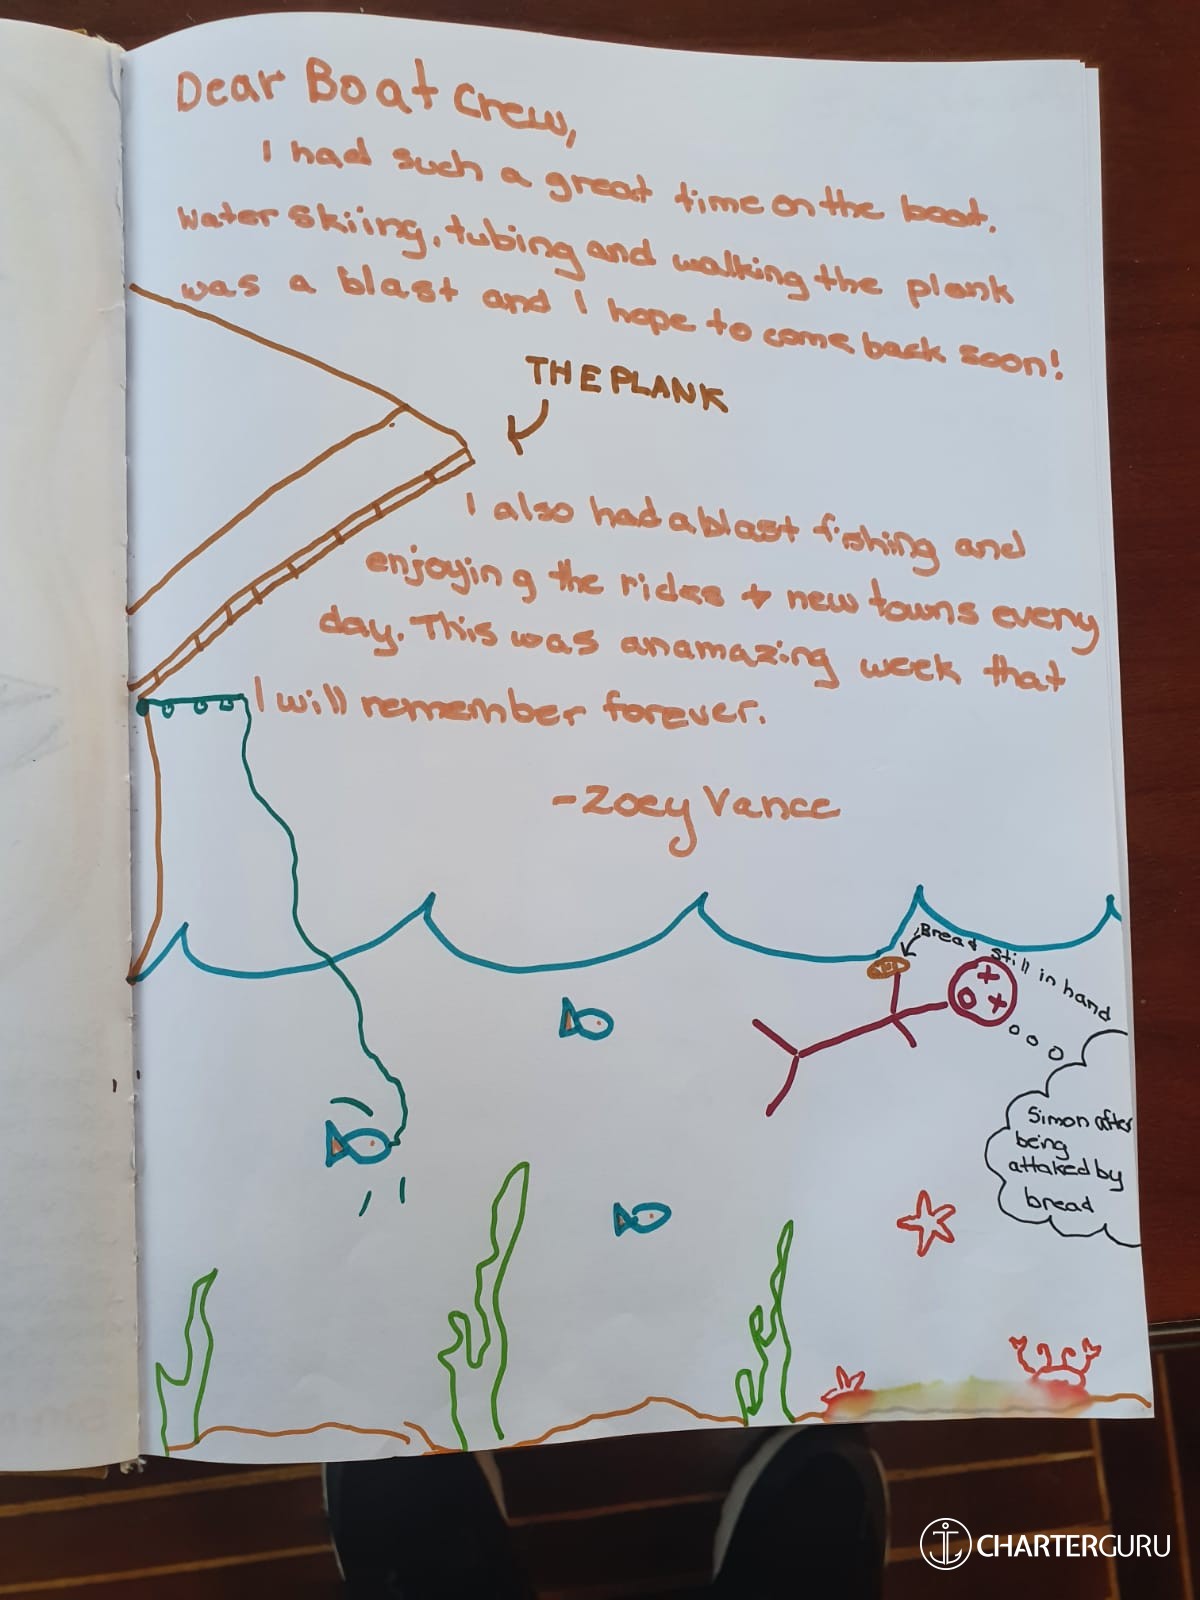 Dear Boat Crew,
I had such a great time on the boat.
Water skiing, tubing and walking the plank
was a blast and I hope to come back soon!
THE PLANK
I also had a blast fishing and
enjoying the rides + new towns every
day. This was an amazing week that
I will remember forever.
-Zoey Vance
Bread still in hand
Simon after
being
attaked by
bread
CHARTERGURU